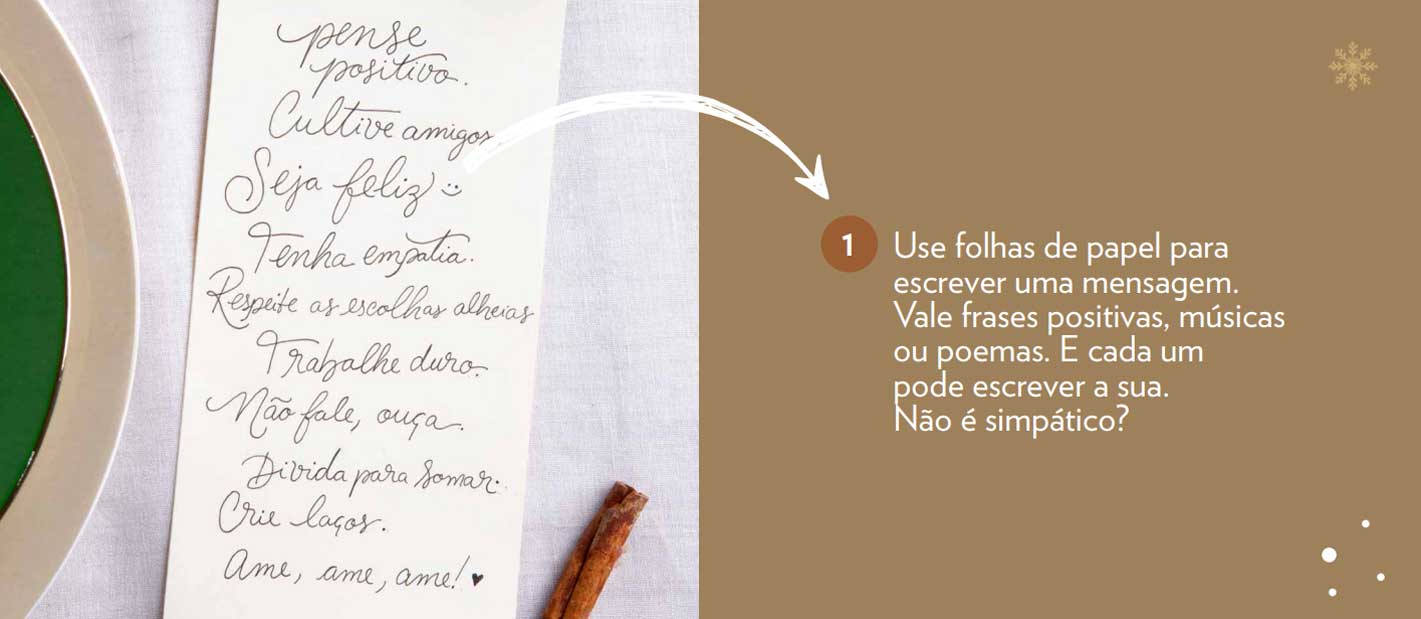 pense
positivo.
Cultive amigos
Seja feliz :)
Tenha empatia.
Respeite as escolhas alheias
Trabalhe duro.
Não fale, ouça.
Divida para somar.
Crie laços.
Ame, ame, ame! ♥
1
Use folhas de papel para
escrever uma mensagem.
Vale frases positivas, músicas
ou poemas. E cada um
pode escrever a sua.
Não é simpático?